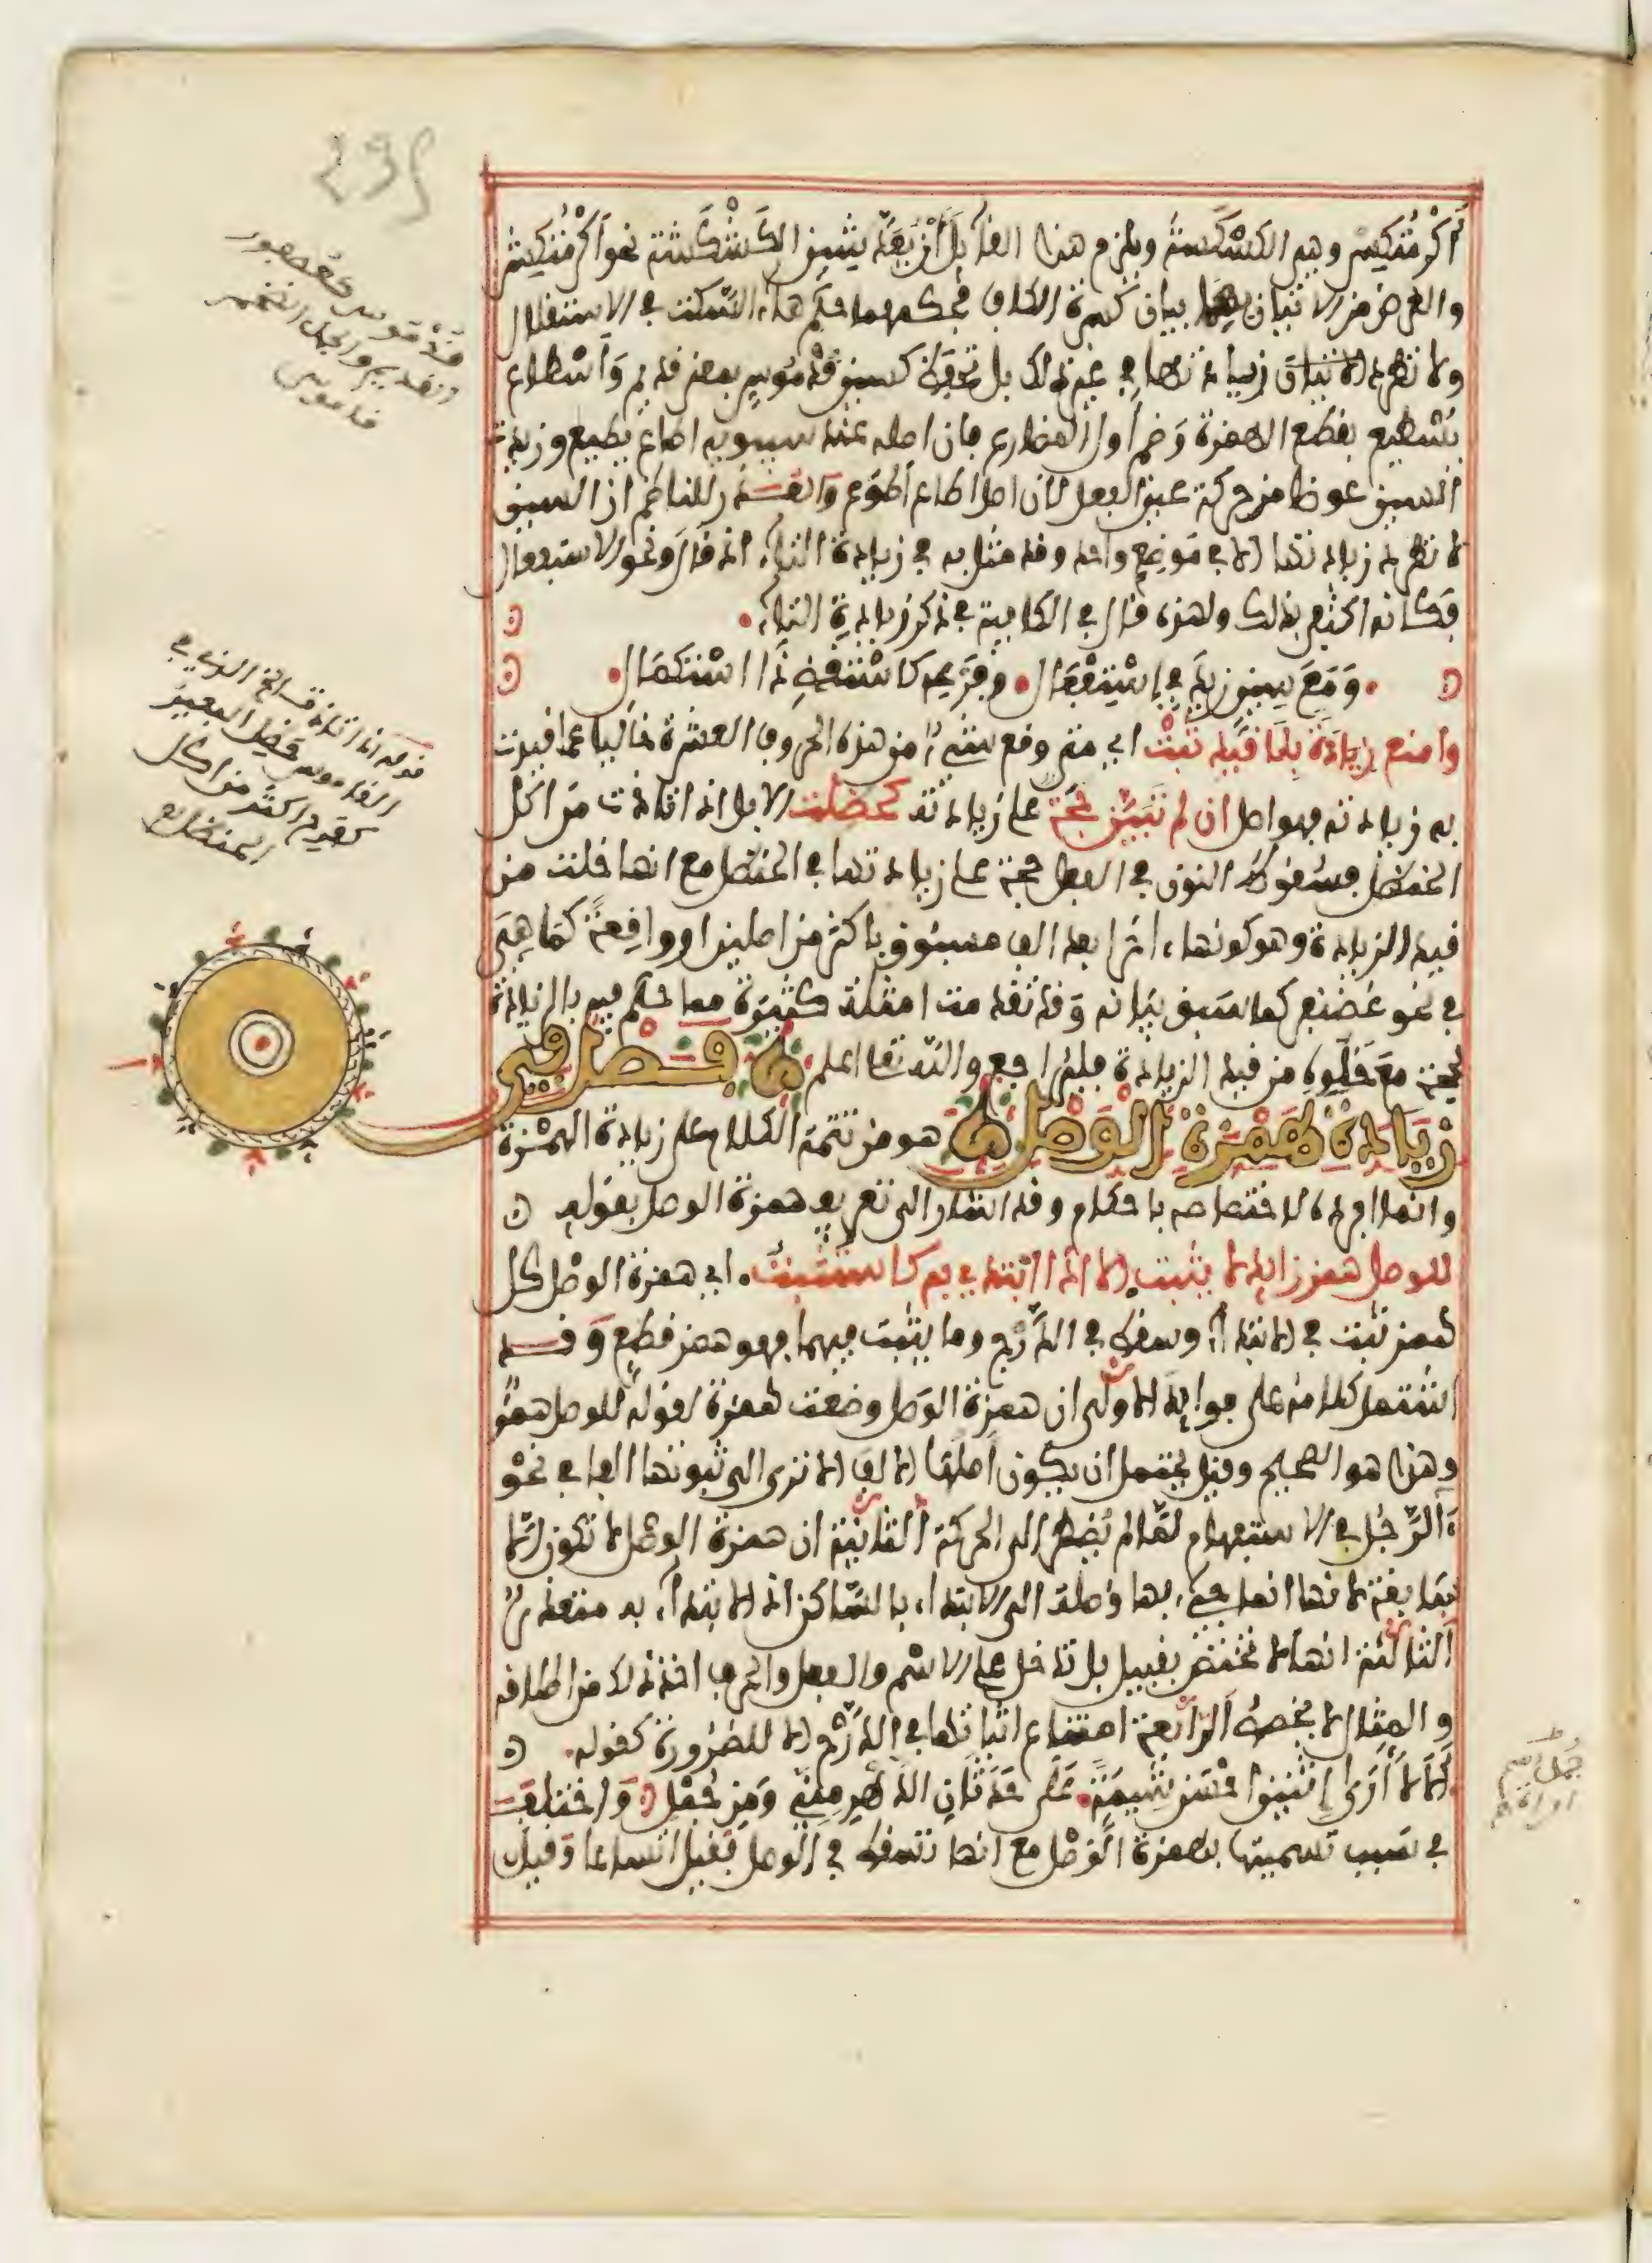 أكرمتكس وهي الكسكسة ويلزم هذا القائل أن يعد شين الكشكشة نحو أكرمتكش
والغرض من الاتيان بهما بيان كسرة الكاف فحكمهما حكم هاء السكت في الاستقلال
ولا تطرد زيادتها في غير ذلك بل تحفظ كسين قدموس بمعنى قديم وأسطاع
يسطيع بقطع الهمزة وضم أول المضارع فان اصله عند سيبويه اطاع يطيع وزيدت
السين عوضا من حركة عين الفعل لان اصل اطاع أطوع والعذر للناظم ان السين
لا تطرد زيادتها الا في موضع واحد وقد مثل به في زيادة التاء اذ قال ونحو الاستفعال
فكانه اكتفى بذلك ولهذا قال في الكافية في ذكر زيادة التاء
ومع سين زيد في استفعال وفرعه كاستقص ذا استكمال
وامنع زيادة بلا قيد ثبت اي متى وقع شيء من هذه الحروف العشرة خاليا عما قيدت
به زيادته فهو اصل ان لم تبين حجة على زيادته كحظلت الابل اذا تاذت من اكل
الحنظل فسقوط النون في الفعل حجة على زيادتها في الحنظل مع انها خلت من
قيد الزيادة وهو كونها اخرا بعد الف مسبوق باكثر من اصلين او واقعة كما هي
في نحو غضنفر كما سبق بيانه وقد تقدمت امثلة كثيرة مما حكم فيه بالزيادة
لحجة مع خلوه من قيد الزيادة فليراجع والله تعالى اعلم فصل في
زيادة همزة الوصل هو من تتمة الكلام على زيادة الهمزة
وانما افرده لاختصاصه باحكام وقد اشار الى تعريف همزة الوصل بقوله
للوصل همز زائد لا يثبت الا اذا ابتدي به كاستثبتوا اي همزة الوصل كل
همز ثبت في الابتداء وسقط في الدرج وما يثبت فيهما فهو همز قطع وقد
اشتمل كلامه على فوائد الاولى ان همزة الوصل وضعت همزة لقوله للوصل همز
وهذا هو الصحيح وقيل يحتمل ان يكون اصلها الالف الا ترى الى ثبوتها الفا في نحو
ءالرجل في الاستفهام لما لم يضطر الى الحركة الثانية ان همزة الوصل لا تكون الا
سابقة لانها انما جيء بها وصلة الى الابتداء بالساكن اذ الابتداء به متعذر
الثالثة انها لا تختص بقبيل بل تدخل على الاسم والفعل والحرف اخذ ذلك من اطلاقه
والمثال لا يخصص الرابعة امتناع اثباتها في الدرج الا للضرورة كقوله
ألا لا أرى إثنين احسن شيمة على حدثان الدهر مني ومن جمل واختلف
في سبب تسميتها بهمزة الوصل مع انها تسقط في الوصل فقيل اتساعا وقيل
قدموس كعصفور
القديم والملك الضخم
قداميس